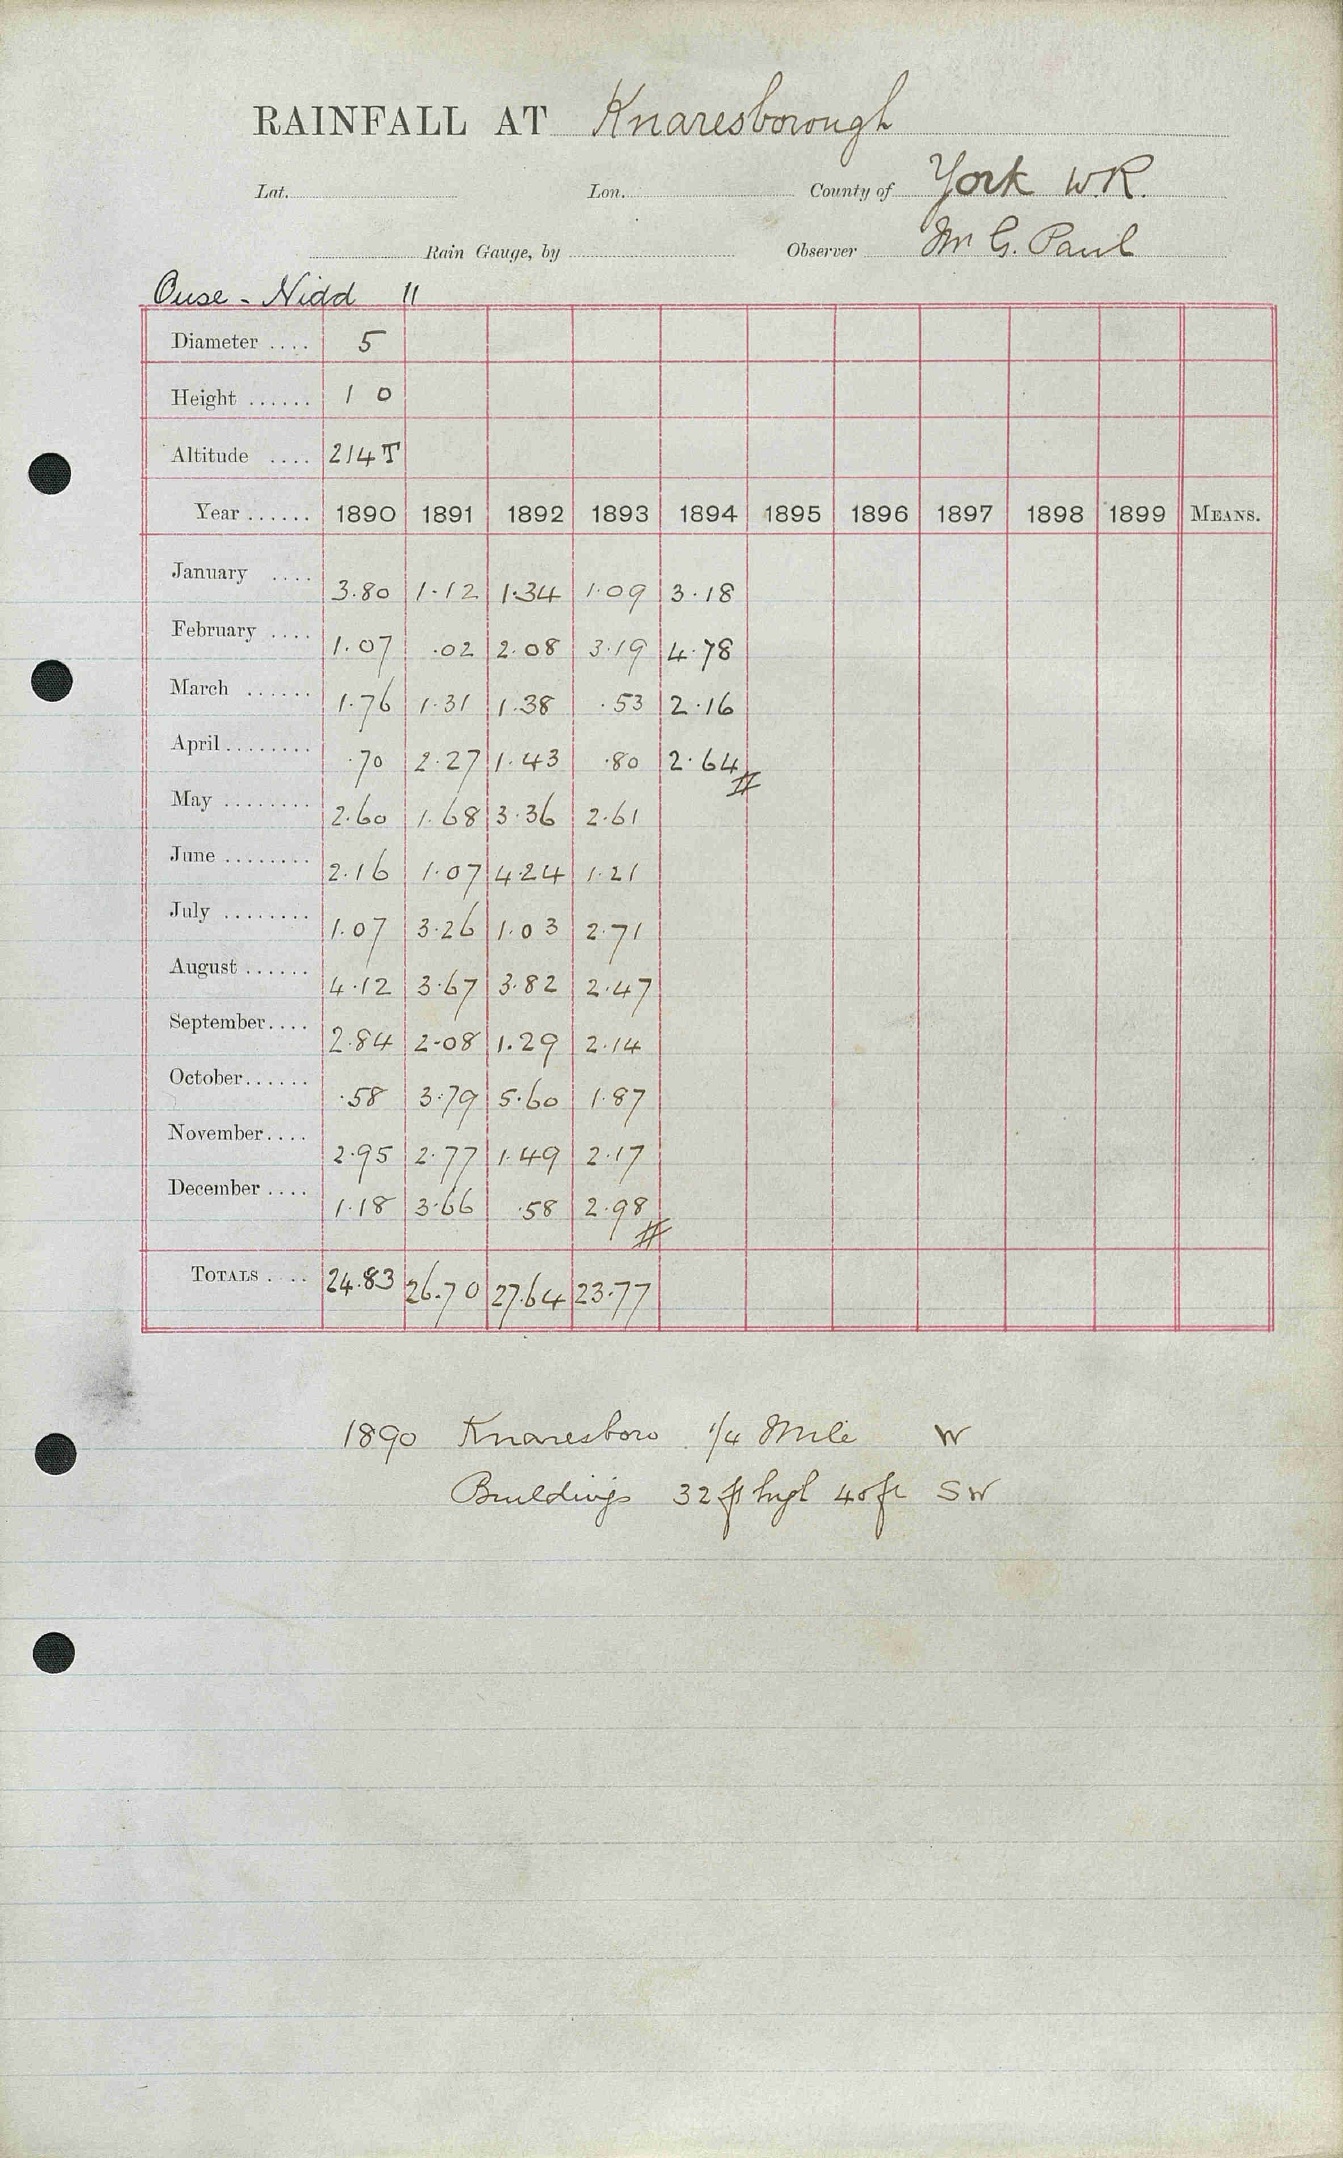 RAINFALL AT Knaresborough
Lat. Lon. County of York W.R.
Rain Gauge, by Observer Mr G. Paul
Ouse - Nidd 11
Diameter .... 5
Height ...... 1 0
Altitude .... 214 T
Year ...... 1890 1891 1892 1893 1894 1895 1896 1897 1898 1899 MEANS.
January .... 3.80 1.12 1.34 1.09 3.18
February .... 1.07 .02 2.08 3.19 4.78
March ...... 1.76 1.31 1.38 .53 2.16
April ........ .70 2.27 1.43 .80 2.64 #
May ........ 2.60 1.68 3.36 2.61
June ........ 2.16 1.07 4.24 1.21
July ........ 1.07 3.26 1.03 2.71
August ...... 4.12 3.67 3.82 2.47
September.... 2.84 2.08 1.29 2.14
October...... .58 3.79 5.60 1.87
November.... 2.95 2.77 1.49 2.17
December .... 1.18 3.66 .58 2.98 #
TOTALS .... 24.83 26.70 27.64 23.77
1890 Knaresboro 1/4 Mile W
Buildings 32 ft high 40 ft SW